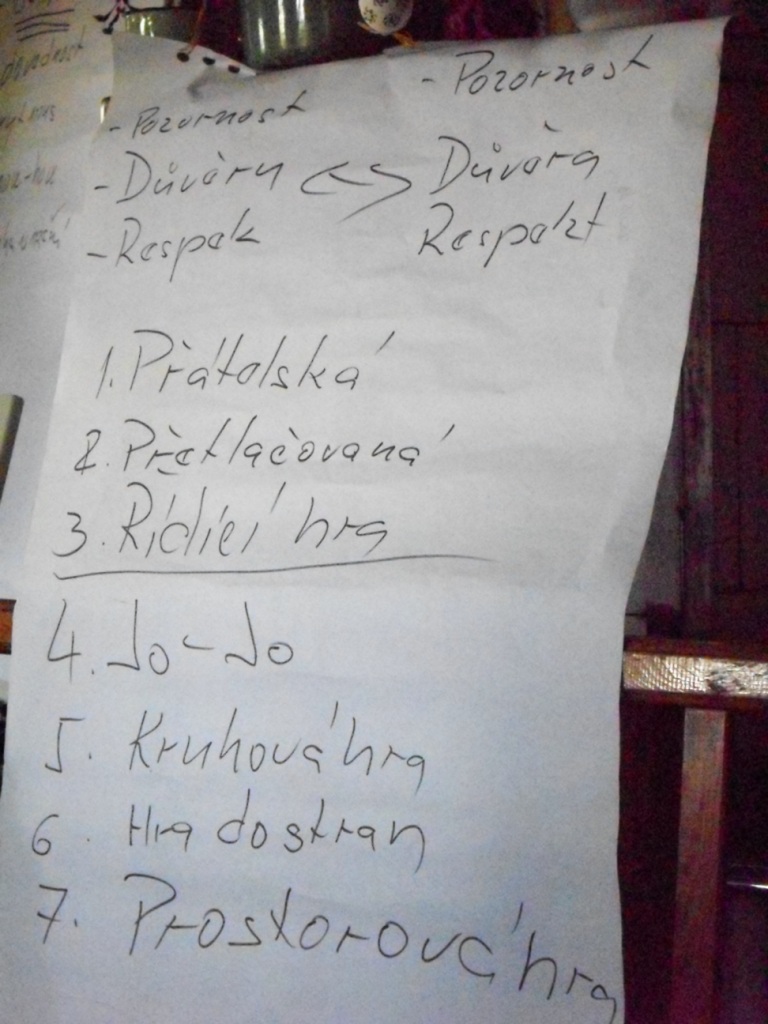 - Pozornost
- Pozornost
- Důvěru <-> Důvěra
- Respek Respekt
1. Přátelská
2. Přetlačovaná
3. Řídící hra
4. Jo-Jo
5. Kruhová hra
6. Hra do stran
7. Prostorová hra